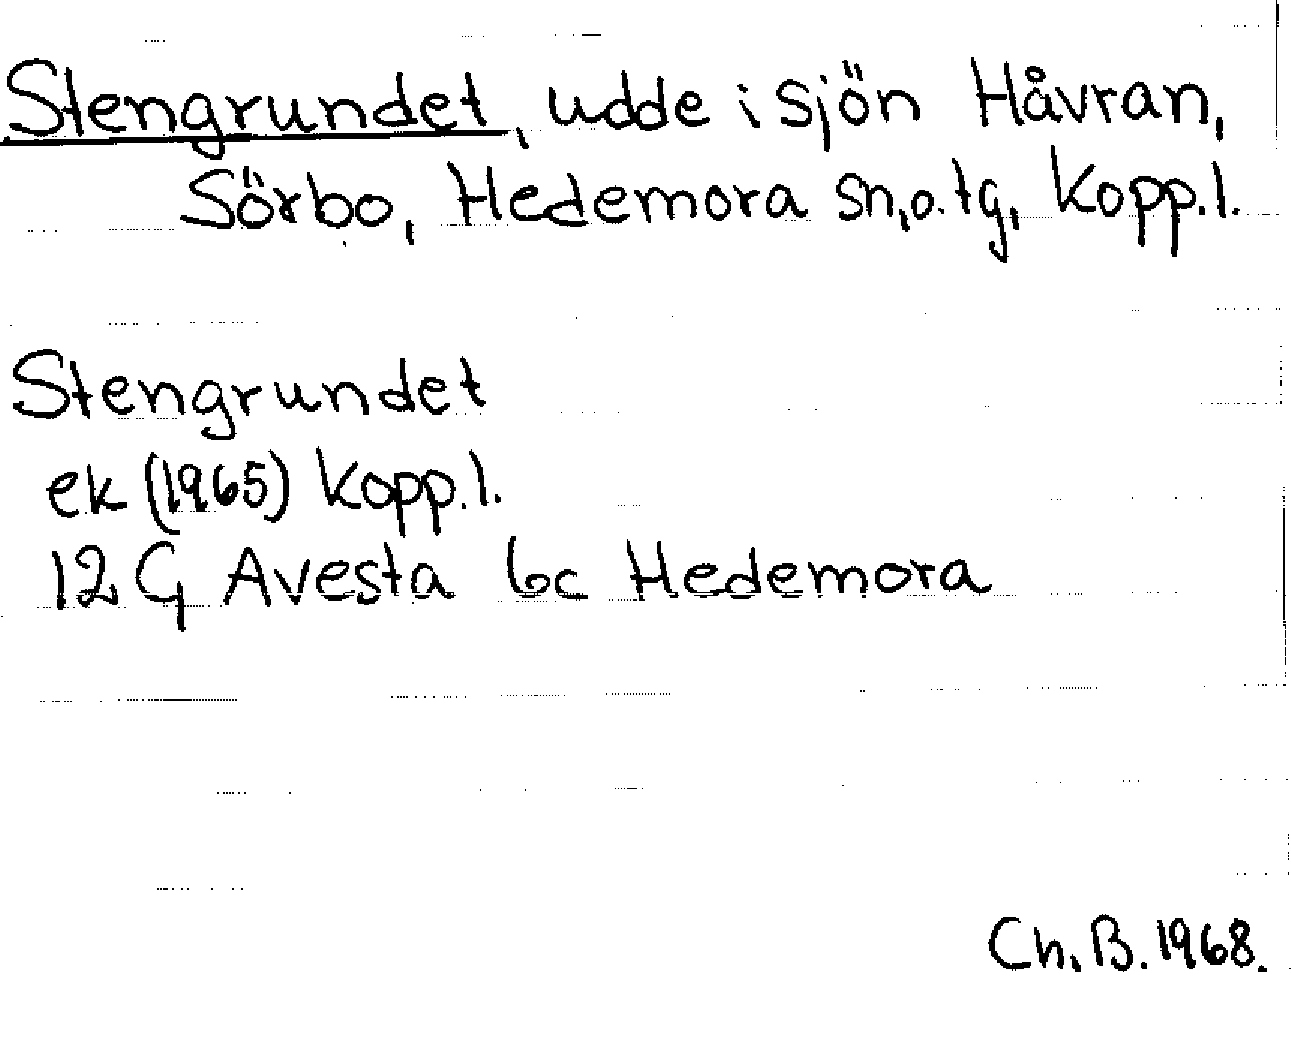 Stengrundet, udde i sjön Håvran,
Sörbo, Hedemora sn,o.tg, Kopp.l.
Stengrundet
ek (1965) Kopp.l.
12 G Avesta 6c Hedemora
Ch.B.1968.